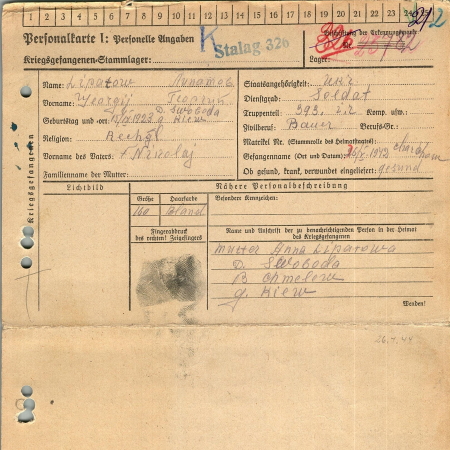 1 2 3 4 5 6 7 8 9 10 11 12 13 14 15 16 17 18 19 20 21 22 23 24 25
Personalkarte I: Personelle Angaben
K
Stalag 326
Beschriftung der Erkennungsmarke
Nr.
Kriegsgefangenen-Stammlager:
Lager:
Kriegsgefangenen
Name: Lipatow Липатов
Vorname: Georgij Георгий
Geburtstag und -ort: 1923 D. Swoboda g. Kiew
Religion:
Vorname des Vaters: + Nikolaj
Familienname der Mutter:
Staatsangehörigkeit: Ukr
Dienstgrad: Soldat
Truppenteil: 393. i.r Komp. usw.:
Zivilberuf: Bauer Berufs-Gr.:
Matrikel Nr. (Stammrolle des Heimatstaates):
Gefangennahme (Ort und Datum): 1942 Charkow
Ob gesund, krank, verwundet eingeliefert: gesund
Lichtbild
Nähere Personalbeschreibung
Größe
Haarfarbe
Besondere Kennzeichen:
160
Blond
Fingerabdruck
des rechten! Zeigefingers
Name und Anschrift der zu benachrichtigenden Person in der Heimat
des Kriegsgefangenen
Mutter Anna Lipatowa
D. Swoboda
B Chmelew
g. Kiew
Wenden!
26.4.44